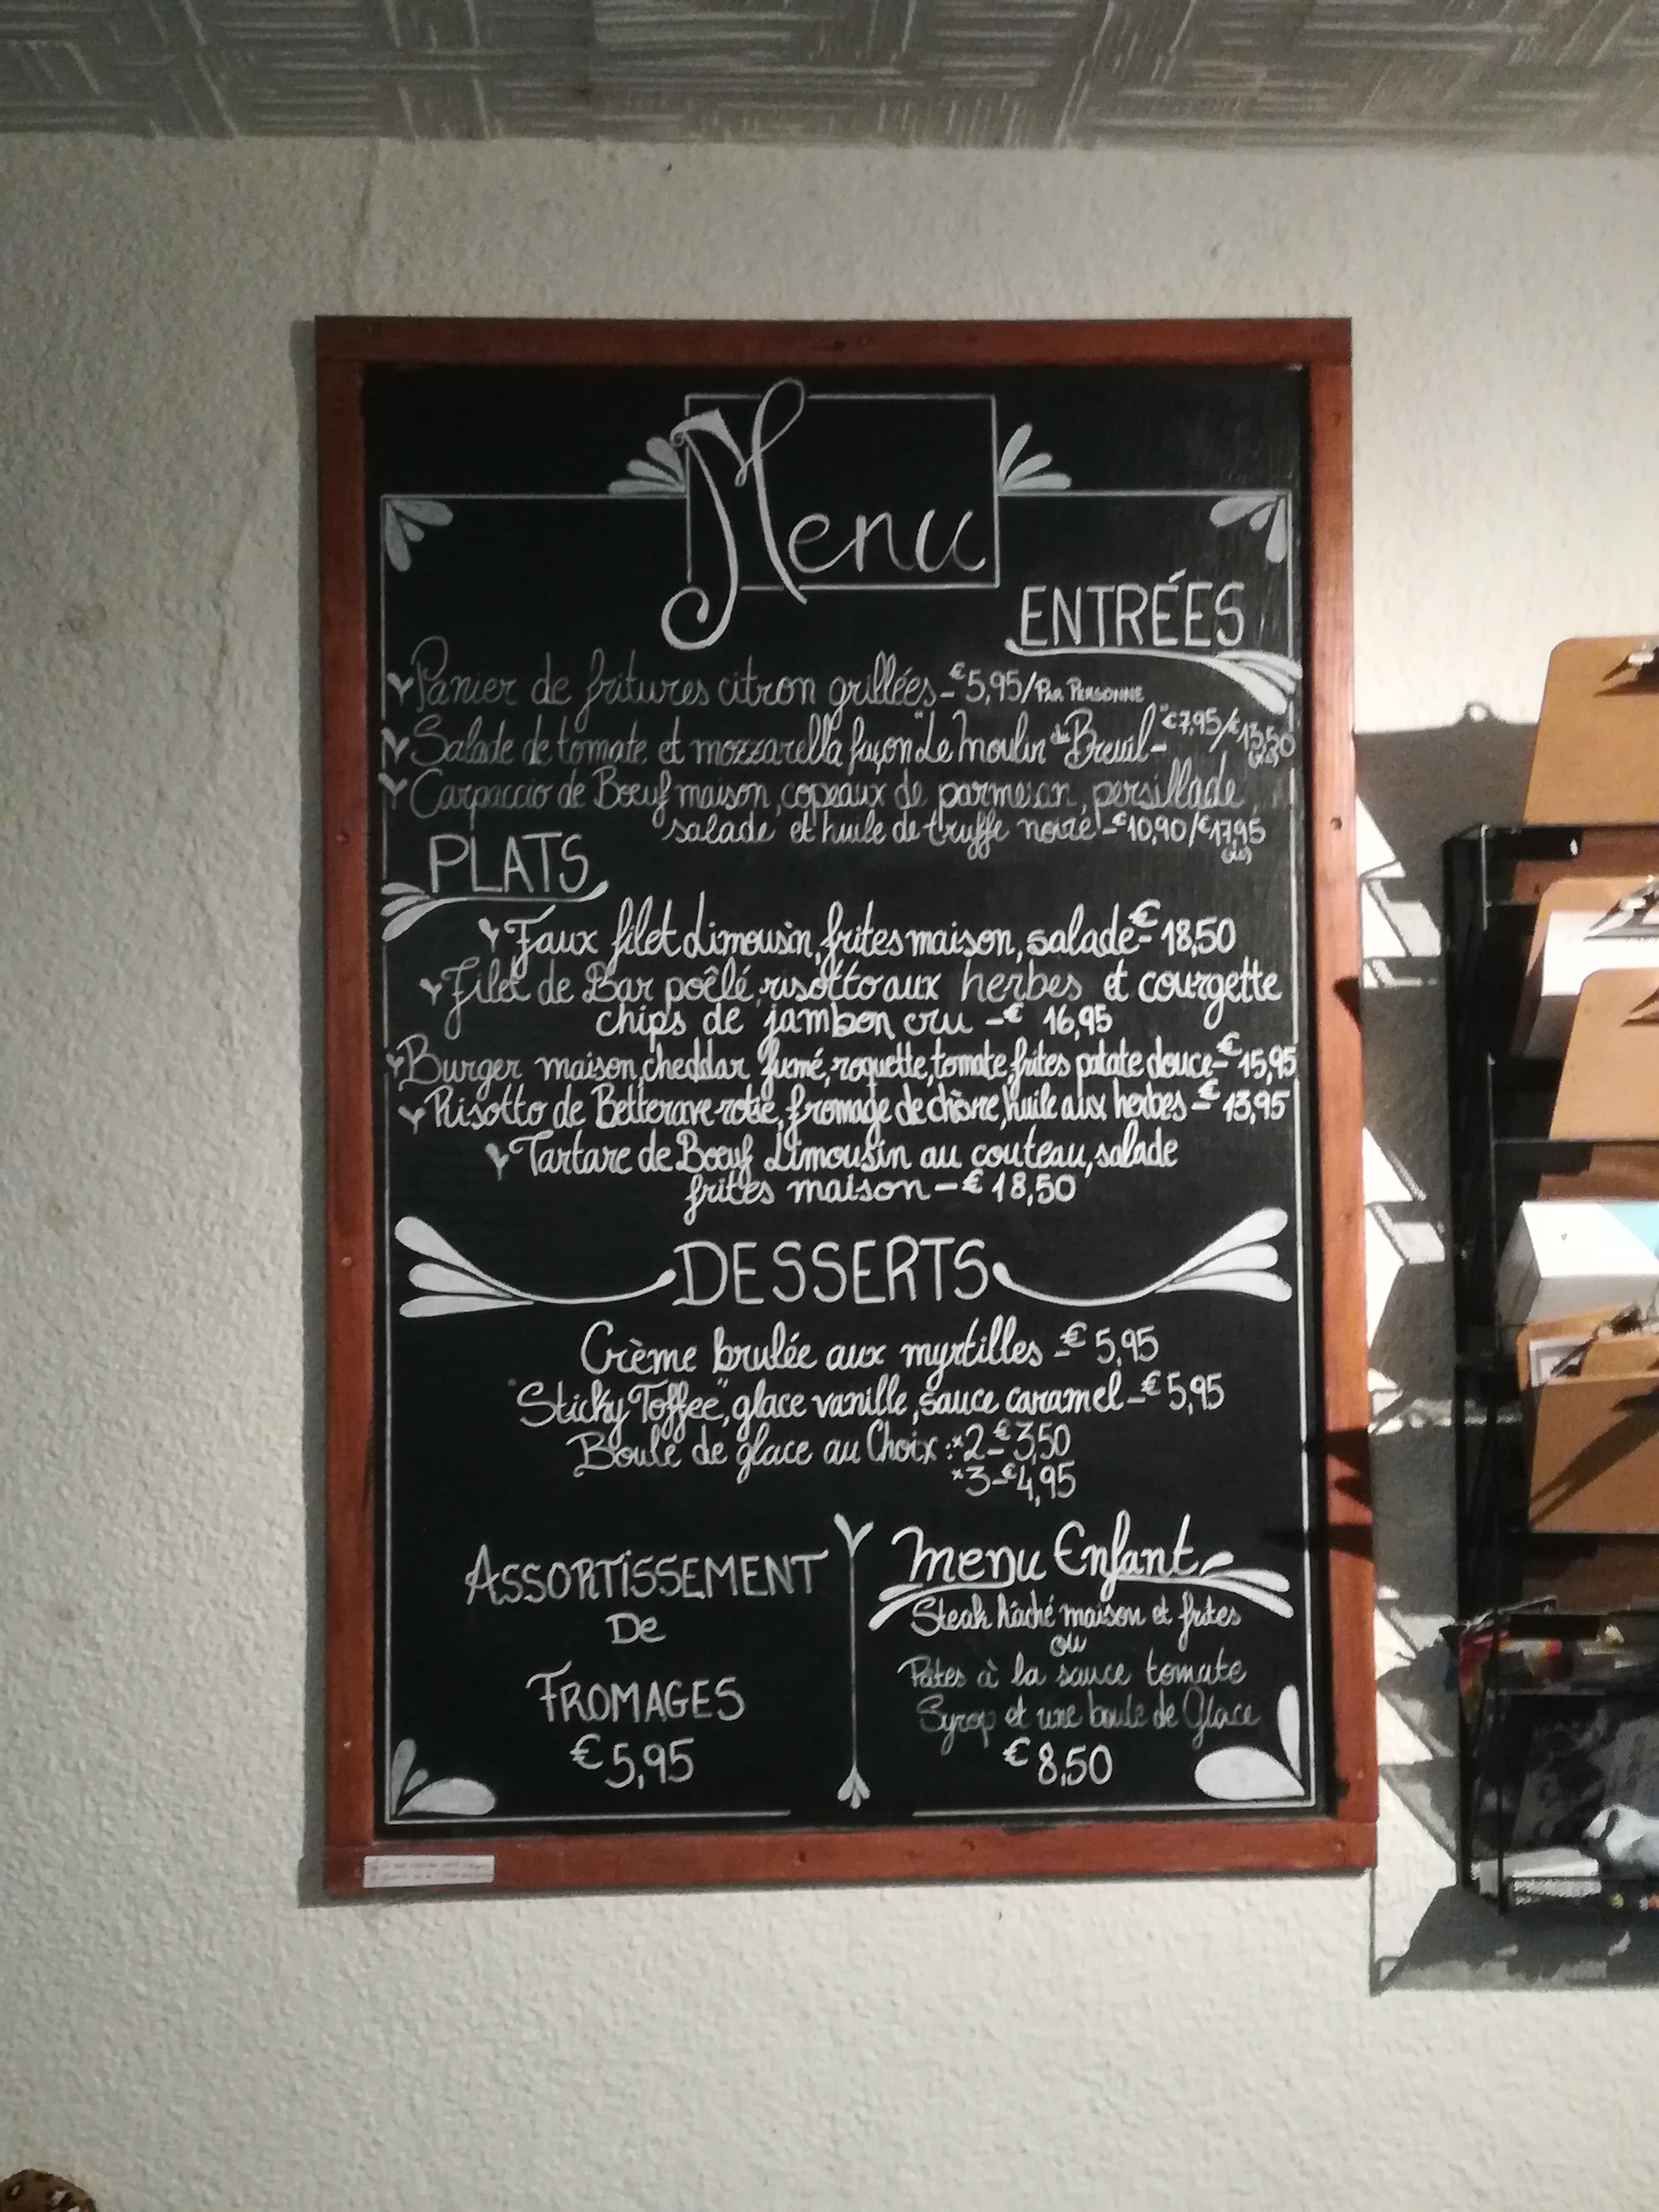 Menu
ENTRÉES
Panier de fritures citron grillées - €5,95/PAR PERSONNE
Salade de tomate et mozzarella façon "Le Moulin du Breuil" - €7,95/€13,50
Carpaccio de Boeuf maison, copeaux de parmesan, persillade,
salade et huile de truffe noire - €10,90/€17,95
PLATS
Faux filet Limousin, frites maison, salade - €18,50
Filet de Bar poêlé, risotto aux herbes et courgette
chips de jambon cru - € 16,95
Burger maison, cheddar fumé, roquette, tomate, frites patate douce - €15,95
Risotto de Betterave rotie, fromage de chèvre, huile aux herbes - € 13,95
Tartare de Boeuf Limousin au couteau, salade
frites maison - € 18,50
DESSERTS
Crème brulée aux myrtilles - € 5,95
"Sticky Toffee", glace vanille, sauce caramel - € 5,95
Boule de glace au Choix : *2 - € 3,50
*3 - €4,95
ASSORTISSEMENT
De
FROMAGES
€ 5,95
Menu Enfant
Steak hâché maison et frites
ou
Pâtes à la sauce tomate
Syrop et une boule de Glace
€ 8,50